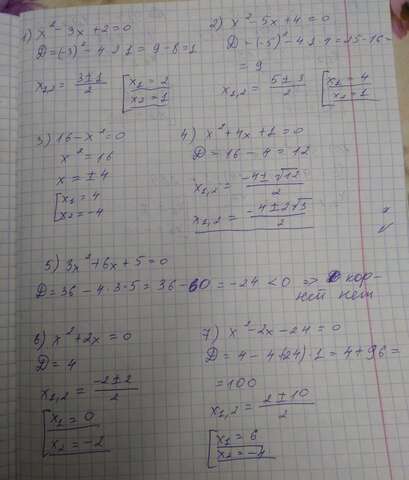 1) x² - 3x + 2 = 0
D = (-3)² - 4·2·1 = 9 - 8 = 1
x₁,₂ = (3 ± 1)/2
[x₁ = 2
x₂ = 1
2) x² - 5x + 4 = 0
D = (-5)² - 4·4 = 25 - 16 =
= 9
x₁,₂ = (5 ± 3)/2
[x₁ = 4
x₂ = 1
3) 16 - x² = 0
x² = 16
x = ± 4
[x₁ = 4
x₂ = -4
4) x² + 4x + 1 = 0
D = 16 - 4 = 12
x₁,₂ = (-4 ± √12)/2
x₁,₂ = (-4 ± 2√3)/2
5) 3x² + 6x + 5 = 0
D = 36 - 4·3·5 = 36 - 60 = -24 < 0 => кор-
ней нет
6) x² + 2x = 0
D = 4
x₁,₂ = (-2 ± 2)/2
[x₁ = 0
x₂ = -2
7) x² - 2x - 24 = 0
D = 4 - 4(-24)·1 = 4 + 96 =
= 100
x₁,₂ = (2 ± 10)/2
[x₁ = 6
x₂ = -4